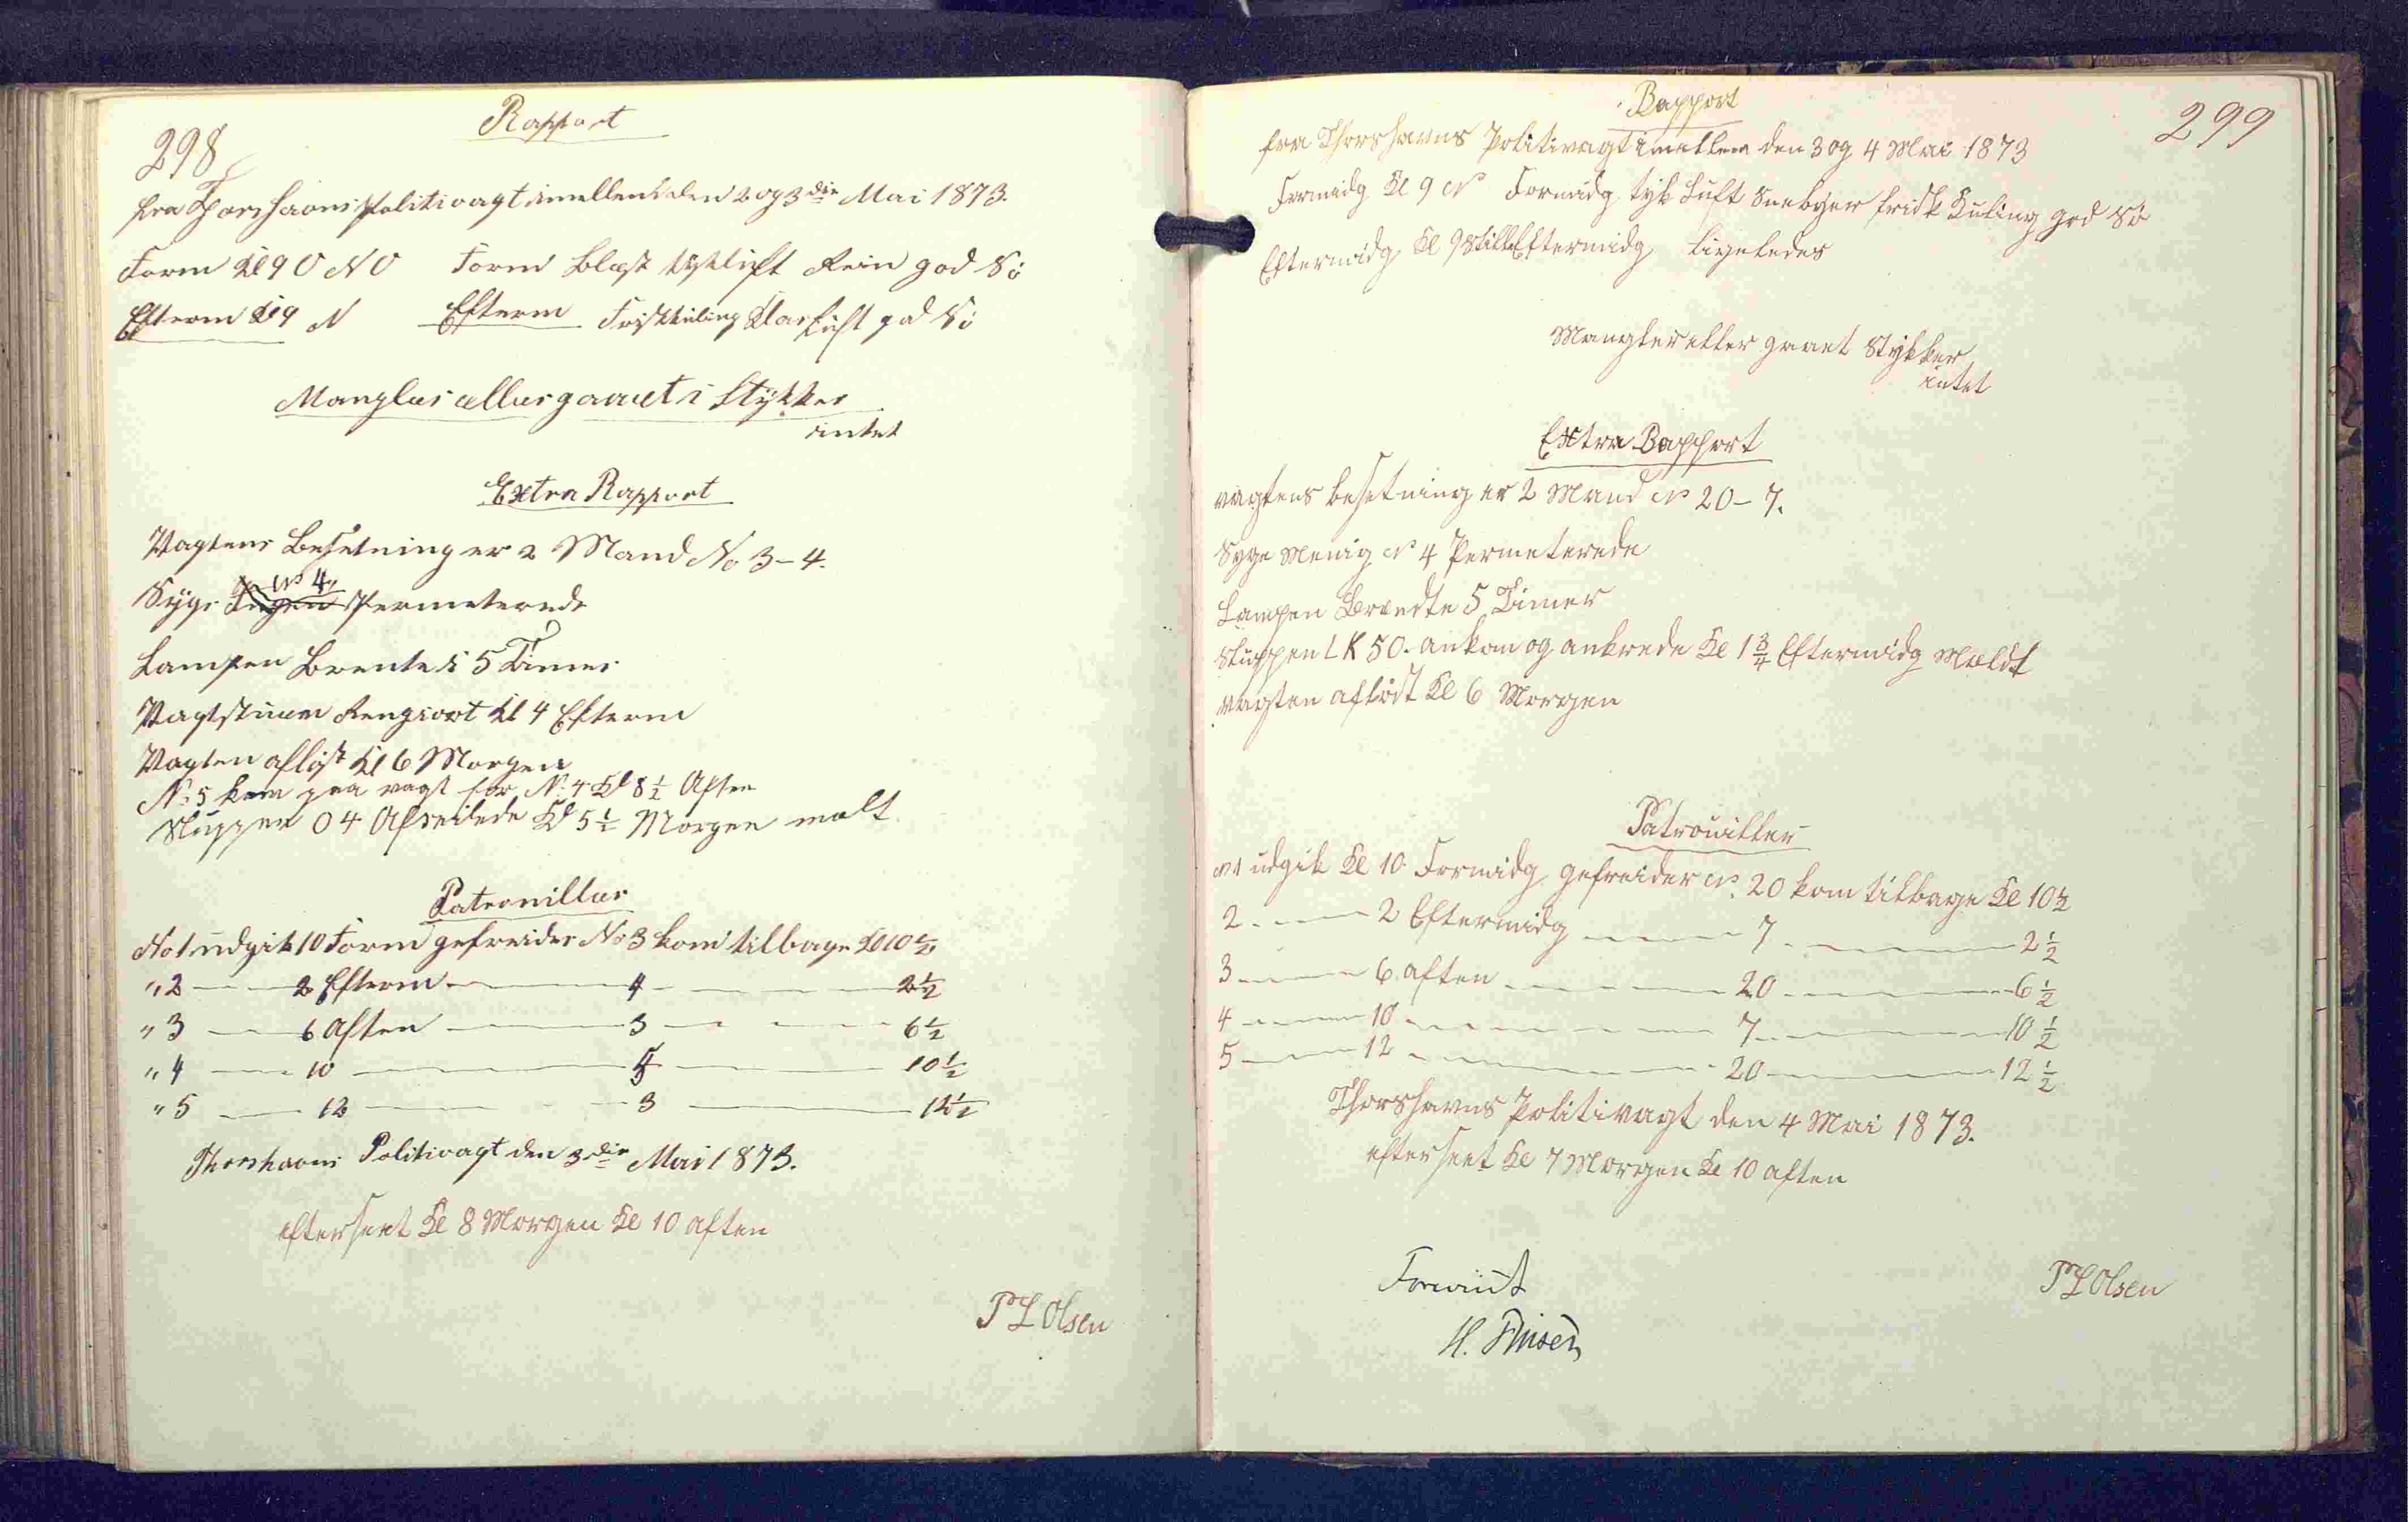 298
Rapport
fra Thorshavns Politivagt imellem den 2 og 3die Mai 1873.
Form Kl 9 O N O Form Blæst tyk luft Rein god Sö
Efterm Kl 9 N Efterm Friskkuling Klar Luft god Sö
Mangler eller gaaet i Stÿkker
intet
Extra Rapport
Vagtens Besetning er 2 Mand No 3-4.
Syge Ingen No 4 Permeterede
Lampen Brente i 5 Timer
Vagtstuen Rengiort Kl 4 Efterm
Vagten aflöst Kl 6 Morgen
No 5 kom paa vagt for No 4 Kl 8 1/2 Aften
Sluppen O 4 Afseilede Kl 5 1/2 Morgen melt
Patrouiller
No 1 udgik 10 Form gefreider No 3 kom tilbage Kl 10 1/2
" 2 — 2 Efterm — 4 — 2 1/2
" 3 — 6 Aften — 3 — 6 1/2
" 4 — 10 — 5 — 10 1/2
" 5 — 12 — 3 — 12 1/2
Thorshavns Politivagt den 3die Mai 1873.
efterseet Kl 8 Morgen Kl 10 aften
P L Olsen
299
Rapport
fra Thorshavns Politivagt imellem den 3 og 4 Mai 1873
Formidg Kl 9 N Formidg tyk Luft Sneebyer frisk Kuling god Sö
Eftermidg Kl 9 Stille Eftermidg ligeledes
Mangler eller gaaet Stykker
intet
Extra Rapport
vagtens besetning er 2 Mand No 20-7.
Syge Menig No 4 Permeterede
Lampen Brendte 5 Timer
Sluppen L K 50. ankom og ankrede Kl 1 3/4 Eftermidg Meldt
vagten aflöst Kl 6 Morgen
Patrouiller
No 1 udgik Kl 10 Formidg gefreider No 20 kom tilbage Kl 10 1/2
2 — 2 Eftermidg — 7 — 2 1/2
3 — 6 aften — 20 — 6 1/2
4 — 10 — 7 — 10 1/2
5 — 12 — 20 — 12 1/2
Thorshavns Politivagt den 4 Mai 1873.
efterseet Kl 7 Morgen Kl 10 aften
P L Olsen
Foreviist
H. Finsen